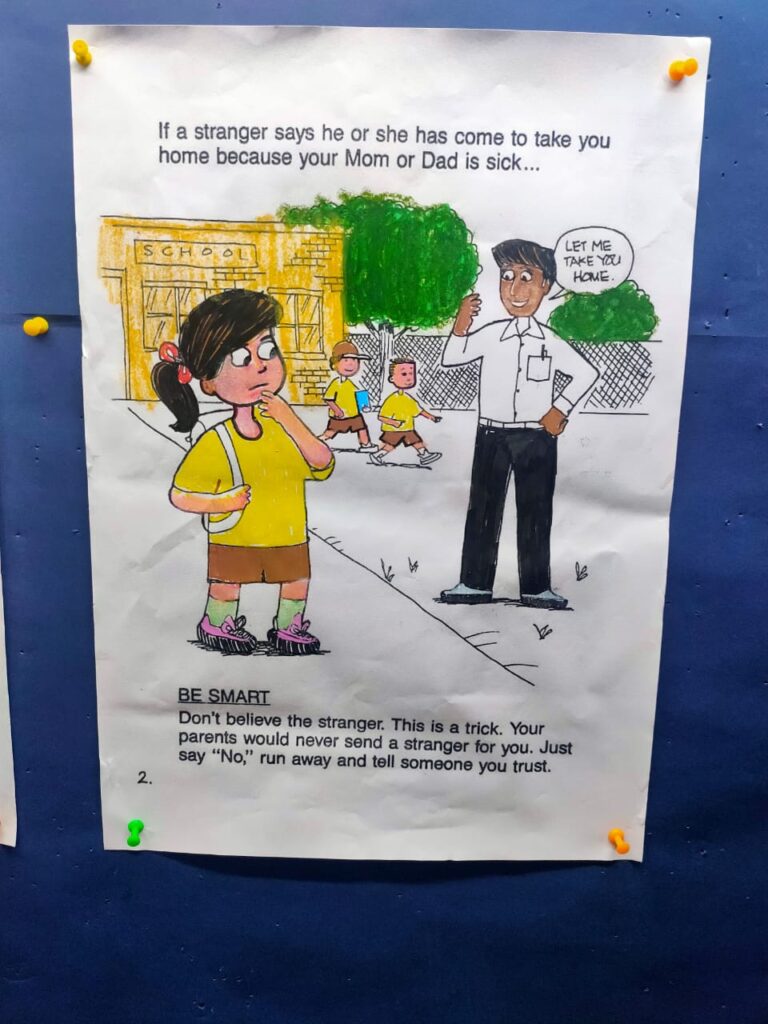 If a stranger says he or she has come to take you
home because your Mom or Dad is sick...
SCHOOL
LET ME
TAKE YOU
HOME.
BE SMART
Don't believe the stranger. This is a trick. Your
parents would never send a stranger for you. Just
say “No,” run away and tell someone you trust.
2.